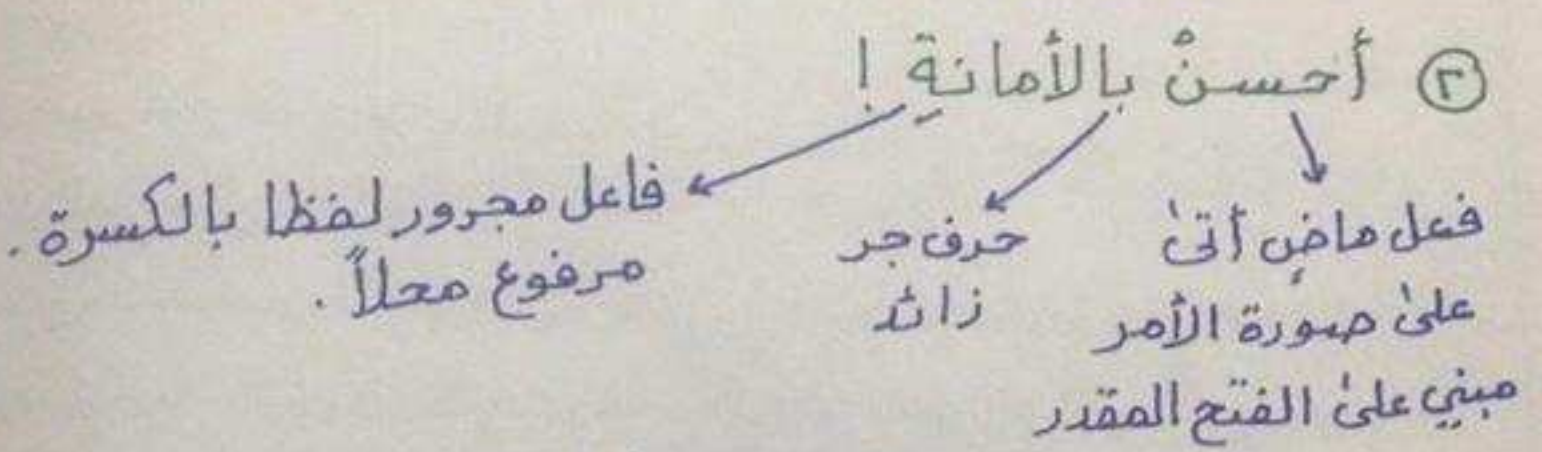 ٢ أحسنْ بالأمانةِ !
فعل ماضٍ أتىٰ
علىٰ صورة الأمر
مبني علىٰ الفتح المقدر
حرف جر
زائد
فاعل مجرور لفظا بالكسرة .
مرفوع محلاً .